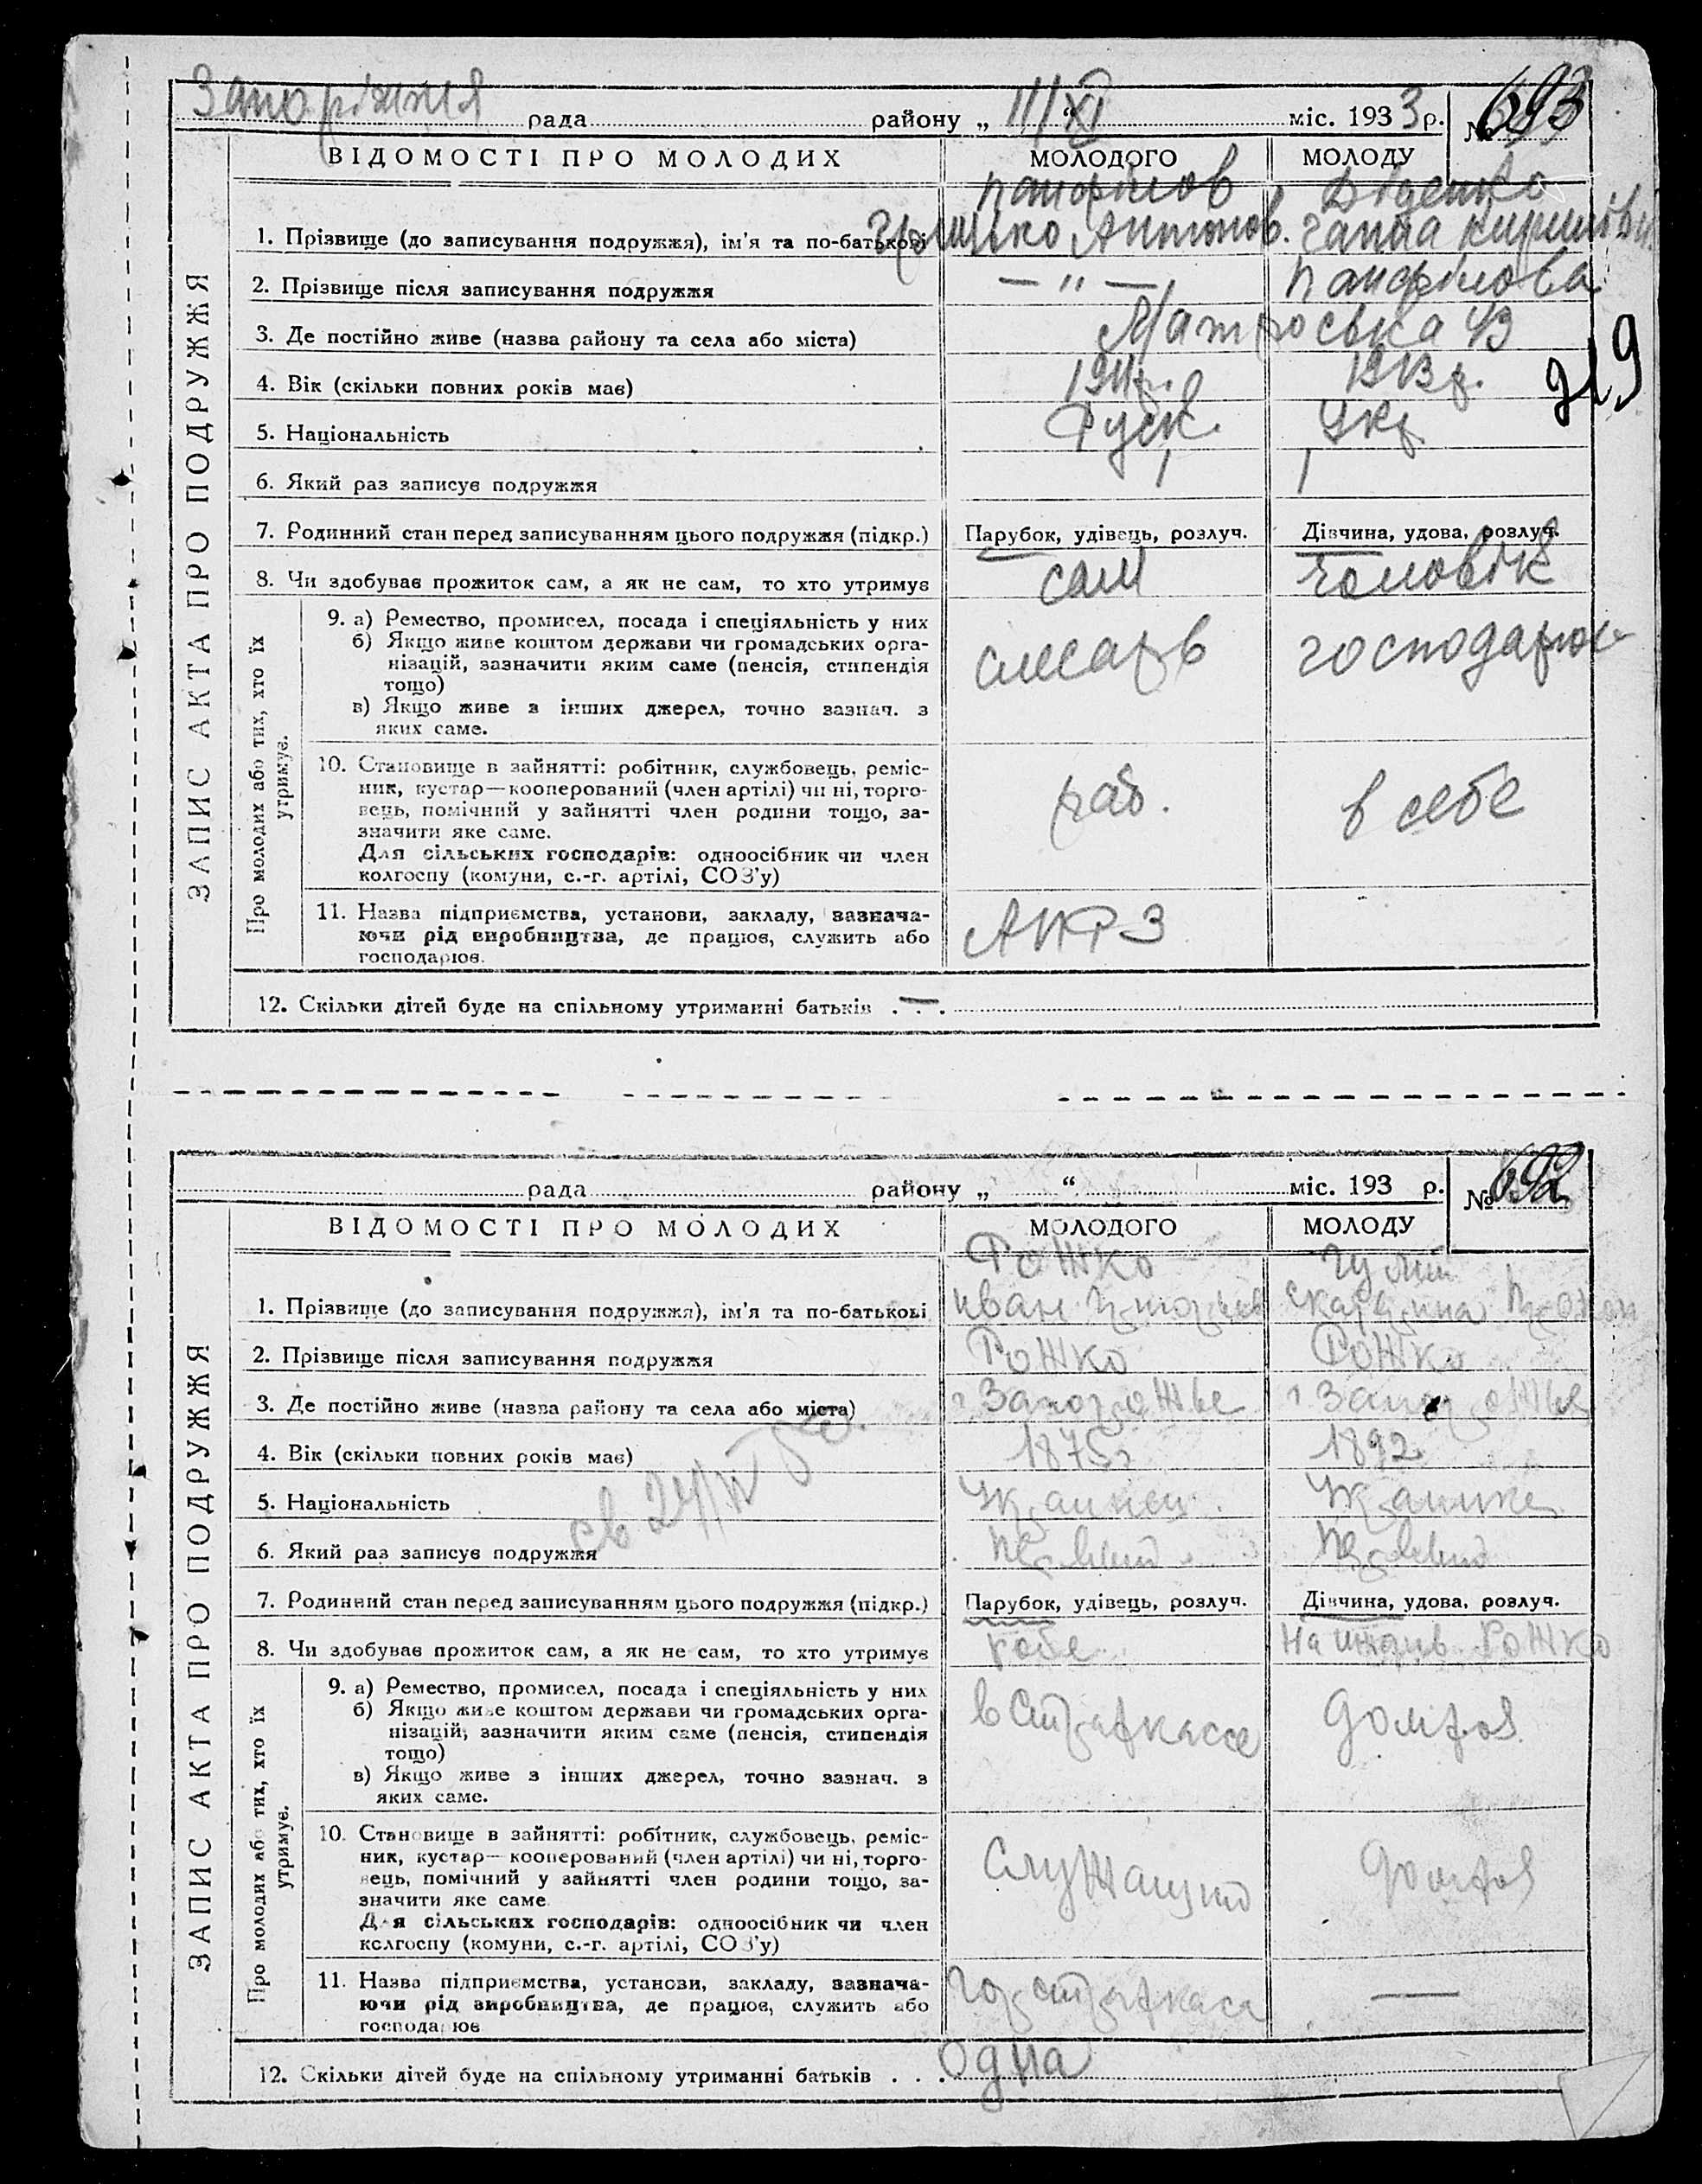 Запоріжжя рада району „ III/XI “ міс. 1933 р. № 693
ВІДОМОСТІ ПРО МОЛОДИХ МОЛОДОГО МОЛОДУ
Панфілов Діденко
1. Прізвище (до записування подружжя), ім'я та по-батькові Грицько Антонов. Ганна Кирилівн.
2. Прізвище після записування подружжя — „ — Панфілова
3. Де постійно живе (назва району та села або міста) Матроська 43
4. Вік (скільки повних років має) 1911р. 1913р.
219
5. Національність Руск. Укр
6. Який раз записує подружжя 1 1
7. Родинний стан перед записуванням цього подружжя (підкр.) Парубок, удівець, розлуч. Дівчина, удова, розлуч.
8. Чи здобував прожиток сам, а як не сам, то хто утримує сам чоловік
ЗАПИС АКТА ПРО ПОДРУЖЖЯ
Про молодих або тих, хто їх утримує.
9. а) Ремество, промисел, посада і спеціяльність у них
б) Якщо живе коштом держави чи громадських орга-
нізацій, зазначити яким саме (пенсія, стипендія
тощо)
в) Якщо живе з інших джерел, точно зазнач. з
яких саме.
слесарь господарює
10. Становище в зайнятті: робітник, службовець, реміс-
ник, кустар—кооперований (член артілі) чи ні, торго-
вець, помічний у зайнятті член родини тощо, за-
значити яке саме.
Для сільських господарів: одноосібник чи член
колгоспу (комуни, с.-г. артілі, СОЗ'у)
раб. в себе
11. Назва підприємства, установи, закладу, зазнача-
ючи рід виробництва, де працює, служить або
господарює.
АПРЗ
12. Скільки дітей буде на спільному утриманні батьків . . . —
рада району „ “ міс. 193 р. № 692
ВІДОМОСТІ ПРО МОЛОДИХ МОЛОДОГО МОЛОДУ
Рожко
1. Прізвище (до записування подружжя), ім'я та по-батькові Иван Екатерина
2. Прізвище після записування подружжя Рожко Рожко
3. Де постійно живе (назва району та села або міста) г Запорожье г Запорожья
4. Вік (скільки повних років має) 1875г 1892
5. Національність Украинец Украинка
6. Який раз записує подружжя Первый Первый
7. Родинний стан перед записуванням цього подружжя (підкр.) Парубок, удівець, розлуч. Дівчина, удова, розлуч.
8. Чи здобував прожиток сам, а як не сам, то хто утримує На Рожко
ЗАПИС АКТА ПРО ПОДРУЖЖЯ
Про молодих або тих, хто їх утримує.
9. а) Ремество, промисел, посада і спеціяльність у них
б) Якщо живе коштом держави чи громадських орга-
нізацій, зазначити яким саме (пенсія, стипендія
тощо)
в) Якщо живе з інших джерел, точно зазнач. з
яких саме.
в Страхкассе домхоз
10. Становище в зайнятті: робітник, службовець, реміс-
ник, кустар—кооперований (член артілі) чи ні, торго-
вець, помічний у зайнятті член родини тощо, за-
значити яке саме
Для сільських господарів: одноосібник чи член
колгоспу (комуни, с.-г. артілі, СОЗ'у)
Служащий домхоз
11. Назва підприємства, установи, закладу, зазнача-
ючи рід виробництва, де працює, служить або
господарює
Горстрахкаса —
12. Скільки дітей буде на спільному утриманні батьків . . . одна